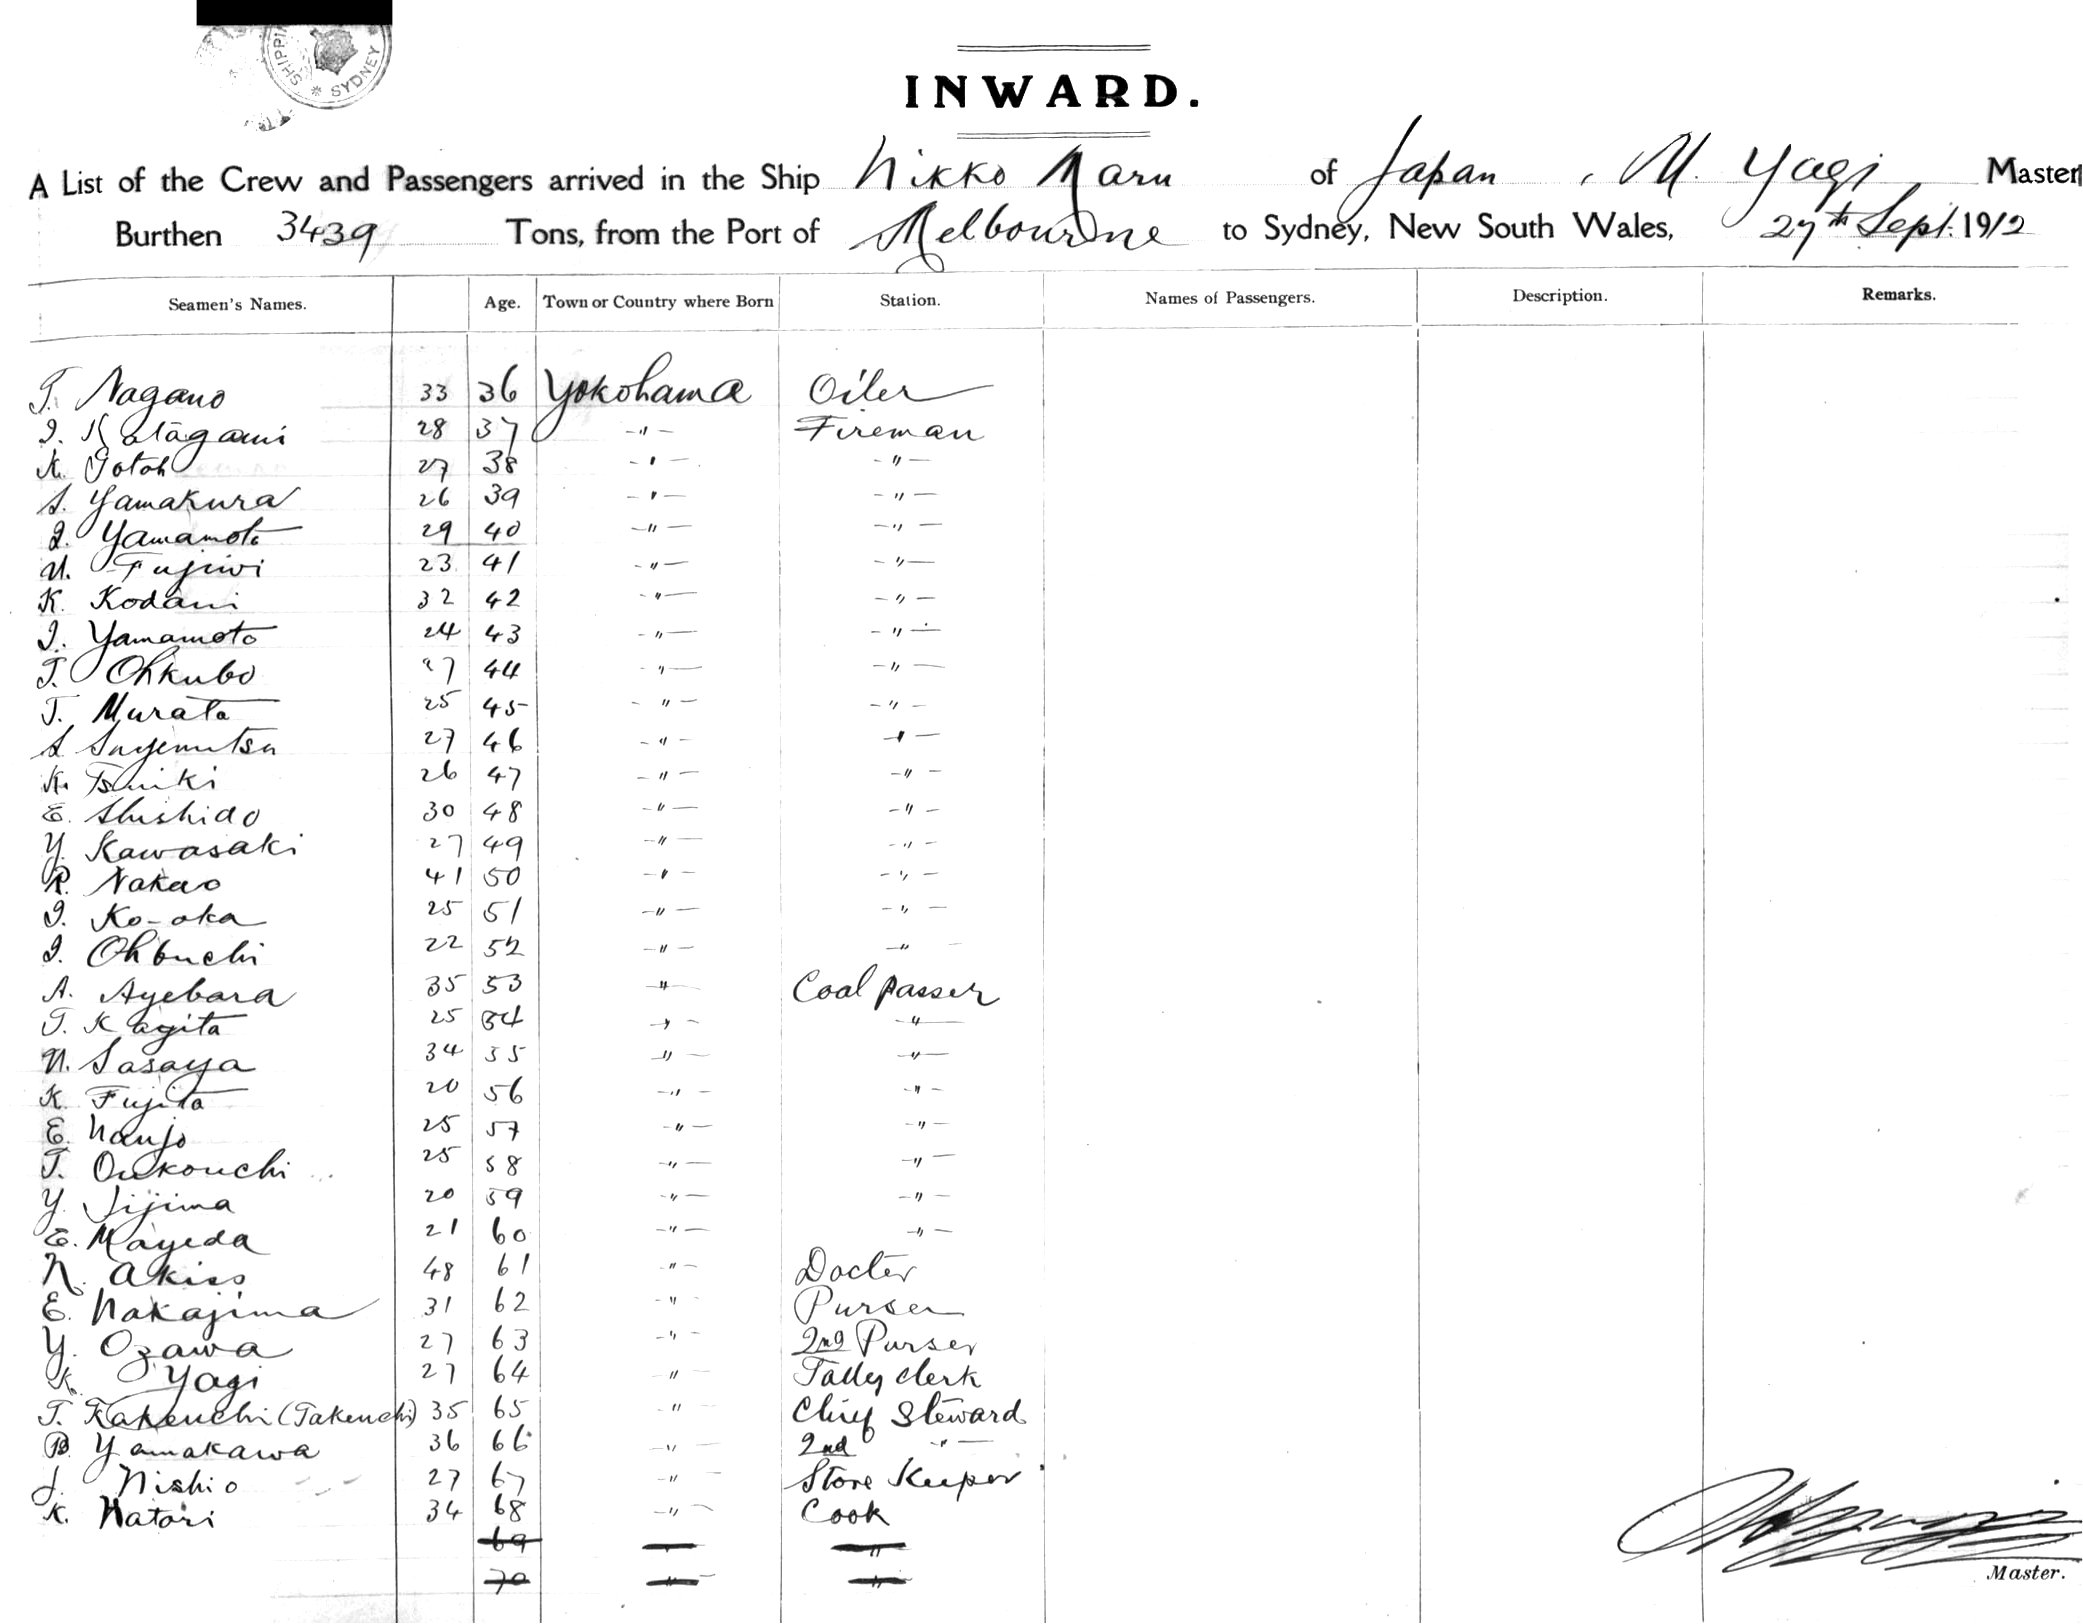 SHIPPING SYDNEY
INWARD.
A List of the Crew and Passengers arrived in the Ship Nikko Maru of Japan, M. Yagi, Master
Burthen 3439 Tons, from the Port of Melbourne to Sydney, New South Wales, 27th Sept. 1912
Seamen's Names. Age. Town or Country where Born Station. Names of Passengers. Description. Remarks.
T. Nagano 33 36 Yokohama Oiler
I. Katagami 28 37 -"- Fireman
K. Gotoh 27 38 -"- -"-
S. Yamakura 26 39 -"- -"-
I. Yamamoto 29 40 -"- -"-
U. Fujiwi 23 41 -"- -"-
K. Kodani 32 42 -"- -"-
I. Yamamoto 24 43 -"- -"-
T. Ohkubo 27 44 -"- -"-
T. Murata 25 45 -"- -"-
S. Suyemutsu 27 46 -"- -"-
K. Tsuiki 26 47 -"- -"-
E. Shishido 30 48 -"- -"-
Y. Kawasaki 27 49 -"- -"-
R. Nakao 41 50 -"- -"-
I. Ko-oka 25 51 -"- -"-
I. Ohbuchi 22 52 -"- -"-
A. Ayebara 35 53 -"- Coal passer
T. Kagita 25 54 -"- -"-
U. Sasaya 34 55 -"- -"-
K. Fujita 20 56 -"- -"-
E. Nanjo 25 57 -"- -"-
T. Oukouchi 25 58 -"- -"-
Y. Iijima 20 59 -"- -"-
E. Mayeda 21 60 -"- -"-
N. Akiss 48 61 -"- Docter
E. Nakajima 31 62 -"- Purser
Y. Ozawa 27 63 -"- 2nd Purser
K. Yagi 27 64 -"- Tally Clerk
T. Takeuchi (Takeuchi) 35 65 -"- Chief Steward
B. Yamakawa 36 66 -"- 2nd -"-
J. Nishio 27 67 -"- Store Keeper
K. Hatori 34 68 -"- Cook
69 -"- -"-
70 -"- -"-
Master.